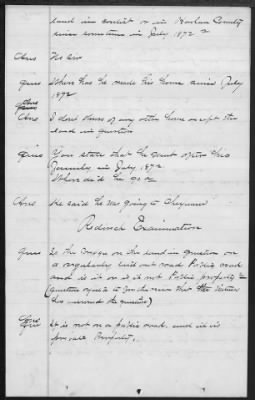 land in conflict or in Harlan County
since sometime in July 1872
Ans No Sir
Ques Where has he made his home since July
1872
Ans I dont know of any other home except the
land in question
Ques You state that he went after his
Family in July 1872
Where did he go to
Ans He said he was going to Cheyenne
Redirect Examination
Ques Is the house on the land in question on
a regularly laid out road Public road
and is it or is it not Public property
(Question objected to for the reason that the witness
has answered the question)
Ans It is not on a public road, and it is
private Property.